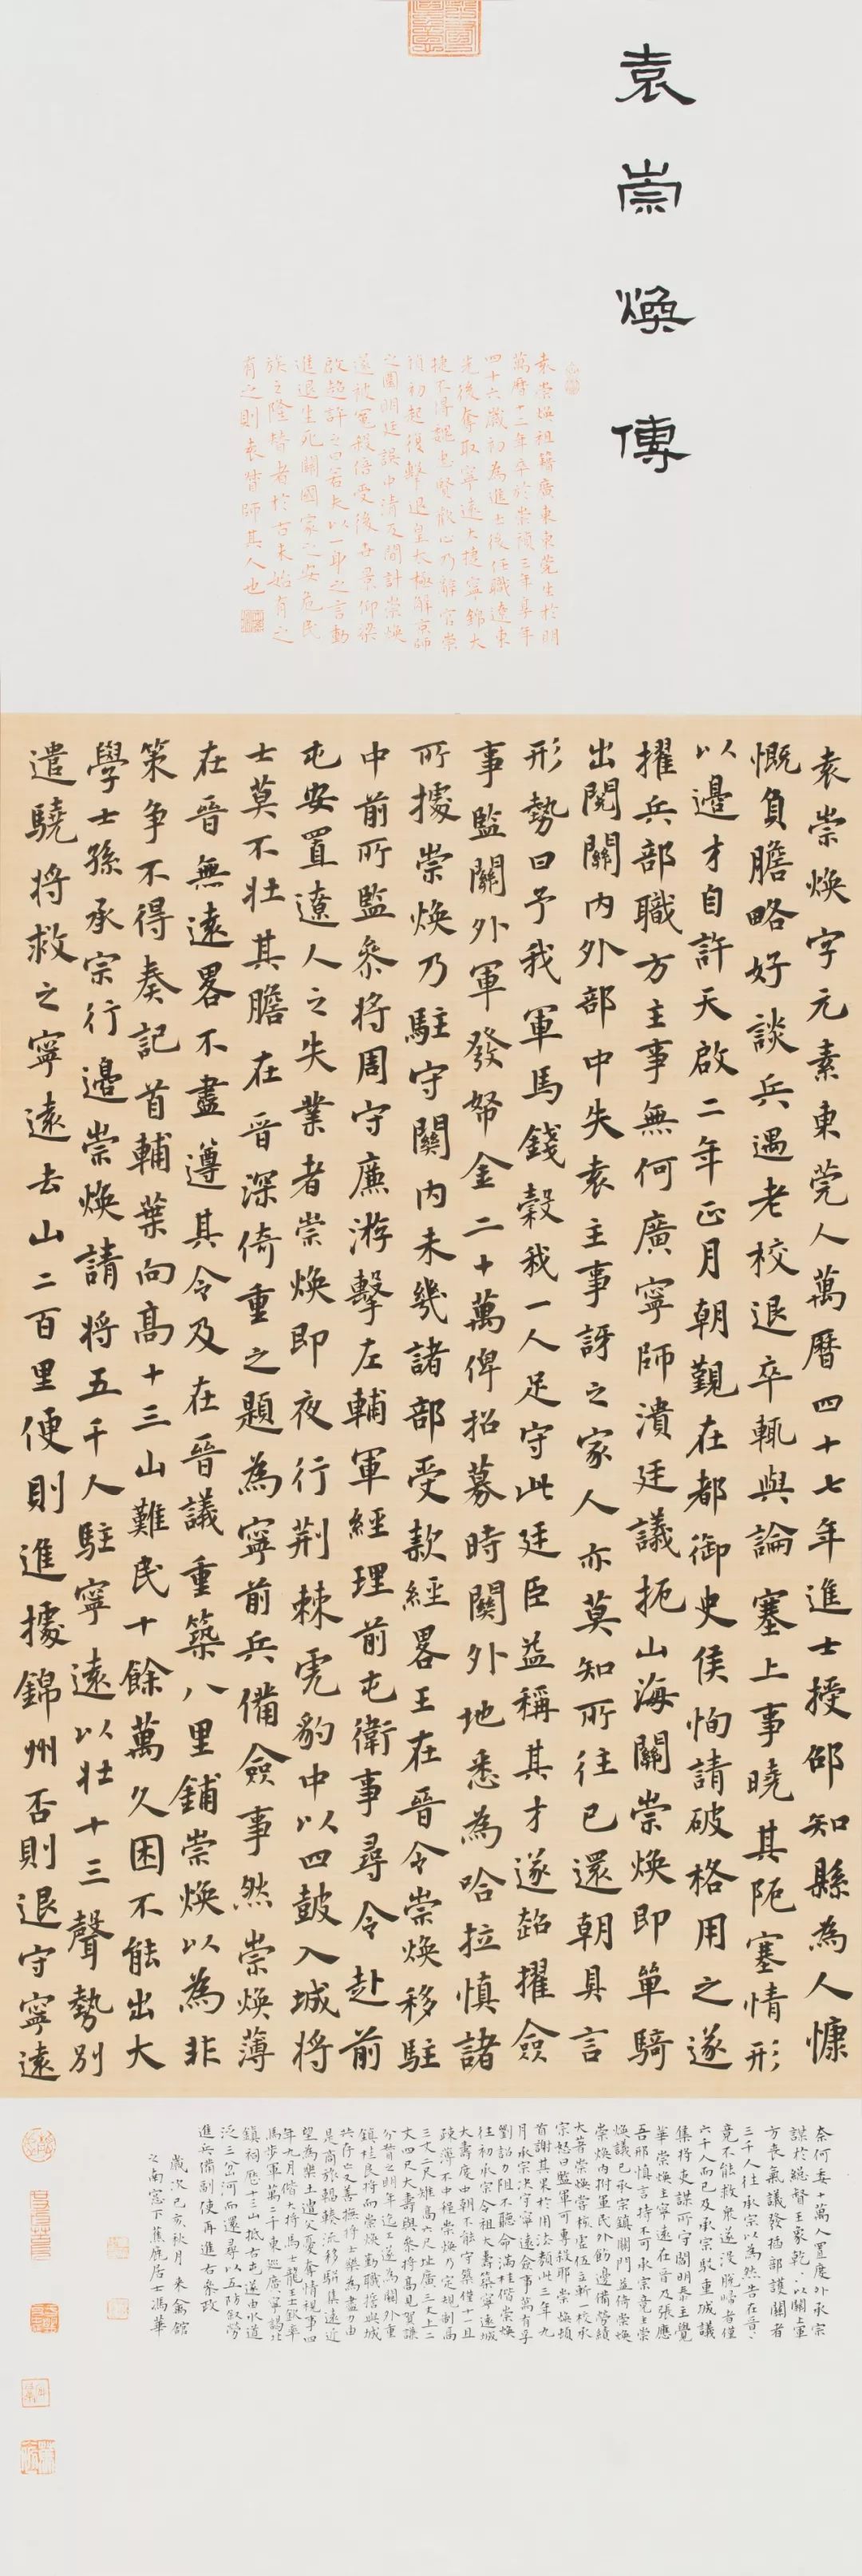 袁崇煥傳
袁崇煥祖籍廣東東莞生於明
萬曆十二年卒於崇禎三年享年
四十六歲初為進士後任職遼東
先後奪取寧遠大捷寧錦大
捷不得魏忠賢歡心乃辭官崇
禎初起復擊退皇太極解京師
之圍明廷誤中清反間計崇煥
遂被冤殺倍受後世景仰梁
啟超評之曰若夫以一身之言動
進退生死關國家之安危民
族之隆替者於古未始有之
有之則袁督師其人也
袁崇煥字元素東莞人萬曆四十七年進士授邵知縣為人慷
慨負膽略好談兵遇老校退卒輒與論塞上事曉其阨塞情形
以邊才自許天啟二年正月朝覲在都御史侯恂請破格用之遂
擢兵部職方主事無何廣寧師潰廷議扼山海關崇煥即單騎
出閱關內外部中失袁主事訝之家人亦莫知所往已還朝具言
形勢曰予我軍馬錢穀我一人足守此廷臣益稱其才遂超擢僉
事監關外軍發帑金二十萬俾招募時關外地悉為哈拉慎諸
所據崇煥乃駐守關內未幾諸部受款經畧王在晉令崇煥移駐
中前所監叅將周守廉游擊左輔軍經理前屯衛事尋令赴前
屯安置遼人之失業者崇煥即夜行荊棘虎豹中以四鼓入城將
士莫不壯其膽在晉深倚重之題為寧前兵備僉事然崇煥薄
在晉無遠畧不盡遵其令及在晉議重築八里鋪崇煥以為非
策爭不得奏記首輔葉向高十三山難民十餘萬久困不能出大
學士孫承宗行邊崇煥請將五千人駐寧遠以壯十三聲勢別
遣驍將救之寧遠去山二百里便則進據錦州否則退守寧遠
奈何委十萬人置度外承宗
謀於總督王象乾以關上軍
方喪氣議發插部護關者
三千人往承宗以為然告在晉
竟不能救衆遂沒脫歸者僅
六千人而已及承宗駁重城議
集將吏謀所守閻鳴泰主覺
華崇煥主寧遠在晉及張應
吾邢慎言持不可承宗竟主崇
煥議已承宗鎮關門益倚崇煥
崇煥內拊軍民外飭邊備勞績
大著崇煥嘗核虛伍立斬一校承
宗怒曰監軍可專殺耶崇煥頓
首謝其果於用法類此三年九
月承宗決守寧遠僉事萬有孚
劉詔力阻不聽命滿桂偕崇煥
往初承宗令祖大壽築寧遠城
大壽度中朝不能守築僅十一且
疎薄不中程崇煥乃定規制高
三丈二尺雉高六尺址廣三丈上二
丈四尺大壽與參將高見賀謙
分督之明年迄工遂為關外重
鎮桂良將而崇煥勤職誓與城
共存亡又善撫將士樂為盡力由
是商旅輻輳流移駢集遠近
望為樂土遭父憂奪情視事四
年九月偕大將馬世龍王世欽率
馬步軍萬二千東巡廣寧謁北
鎮祠歷十三山抵右屯遂由水道
泛三岔河而還尋以五防敘勞
進兵備副使再進右參政
歲次己亥秋月 來禽館
之南窓下蕉鹿居士馮華